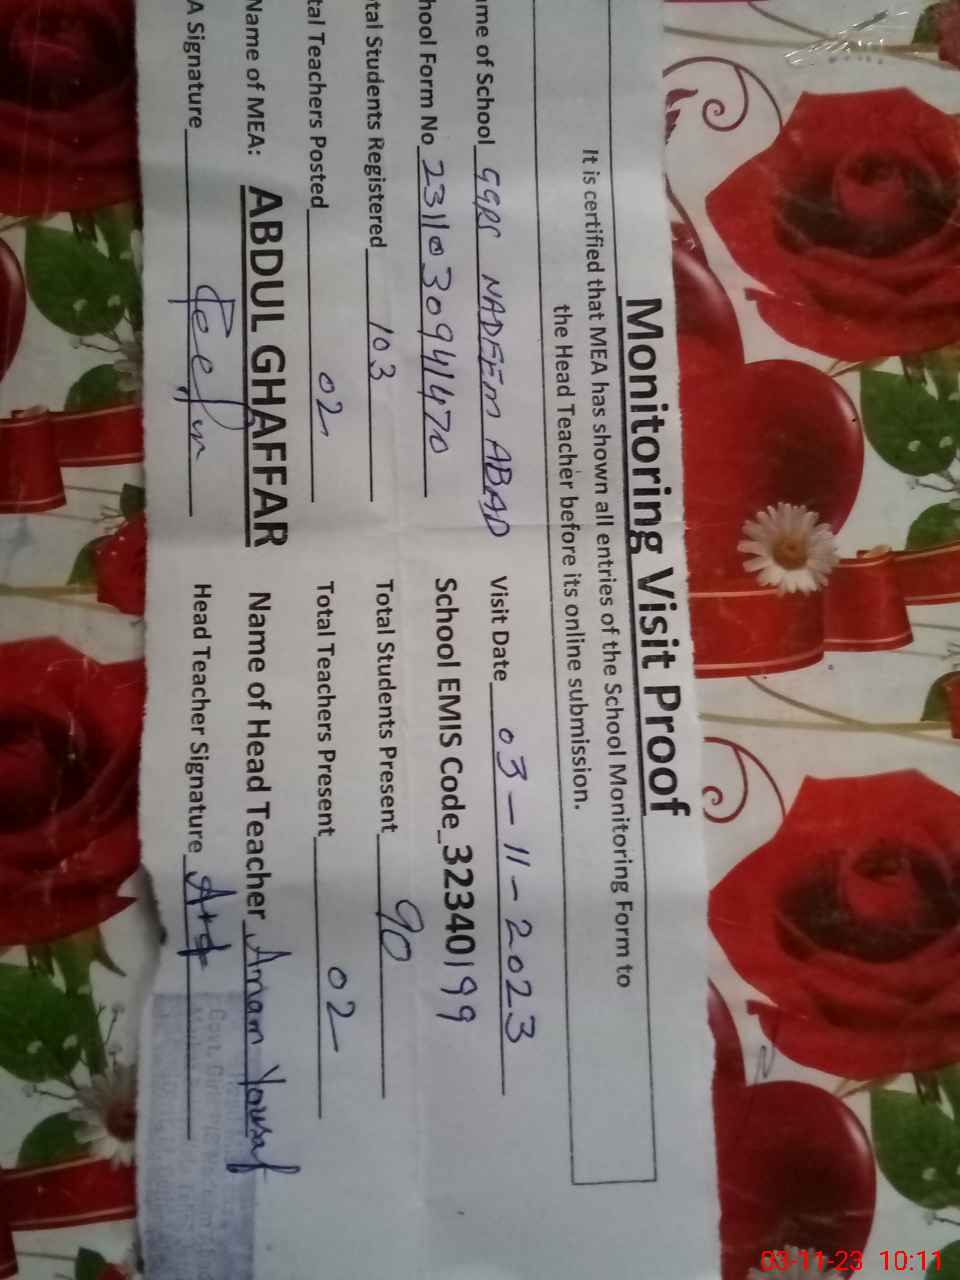 Monitoring Visit Proof
It is certified that MEA has shown all entries of the School Monitoring Form to
the Head Teacher before its online submission.
me of School GGPS NADEEM ABAD Visit Date 03-11-2023
hool Form No 2311030941470 School EMIS Code 32340199
tal Students Registered 103 Total Students Present 90
tal Teachers Posted 02 Total Teachers Present 02
Name of MEA: ABDUL GHAFFAR Name of Head Teacher Amam Yousaf
A Signature Head Teacher Signature
Govt. Girls
03-11-23 10:11